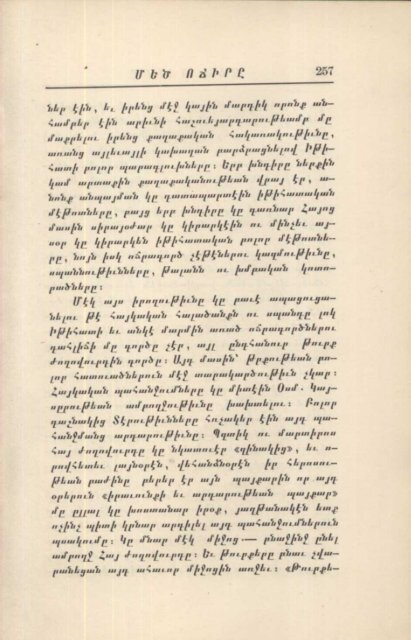 ՄԵԾ ՈՃԻՐԸ 257
ներ էին, եւ իրենց մէջ կային մարդիկ որոնք ան-
համբեր էին արիւնի հաշուեյարդարութեամբ մը
մաքրելու իրենց քաղաքական հակառակութիւնը,
առանց այլեւայլի կախաղան բարձրացնելով Իթի-
հատի բոլոր պարագլուխները։ Երբ խնդիրը ներքին
կամ արտաքին քաղաքականութեան վրայ էր, ա-
նոնք անպայման կը դատապարտէին իթիհատական
մէթոտները, բայց երբ խնդիրը կը դառնար Հայոց
մասին սիրայօժար կը կիրարկէին ու մինչեւ այ-
սօր կը կիրարկեն իթիհատական բոլոր մէթոտնե-
րը, նոյն իսկ ոճրագործ չէթէներու կազմութիւնը,
սպաննութիւնները, թալանն ու խմբական կոտո-
րածները։
Մէկ այս իրողութիւնը կը բաւէ ապացուցա-
նելու թէ հայկական հալածանքն ու սպանդը լոկ
Իթիհատի եւ անկէ մարմին առած ոճրագործներու
դահլիճի մը գործը չէր, այլ ընդհանուր թուրք
ժողովուրդին գործը։ Այդ մասին՝ Թրքութեան բո-
լոր հատուածներուն մէջ տարակարծութիւն չկար։
Հայկական պահանջումները կը միտէին Օսմ. Կայ-
սրութեան ամբողջութիւնը խախտելու։ Բոլոր
դաշնակից Տէրութիւնները հռչակեր էին այդ պա-
հանջմանց արդարութիւնը։ Պզտիկ ու մարտիրոս
հայ ժողովուրդը կը նկատուէր «զինակից», եւ ո-
րովհետեւ լայնօրէն, վեհանձնօրէն իր հերոսու-
թեան բաժինը բերեր էր այն պայքարին որ այդ
օրերուն «իրաւունքի եւ արդարութեան պայքար»
մը ըլլալ կը խոստանար իրօք, յաղթանակէն ետք
ոչինչ պիտի կրնար արգիլել այդ պահանջումներուն
պսակումը։ Կը մնար մէկ միջոց.— բնաջինջ ընել
ամբողջ Հայ ժողովուրդը։ Եւ Թուրքերը բնաւ չվա-
րանեցան այդ ահաւոր միջոցին առջեւ։ «Թուրքե-